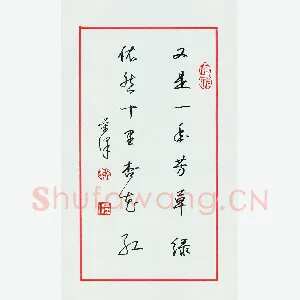 又是一年芳草绿
依然十里杏花红
Shufawang.CN